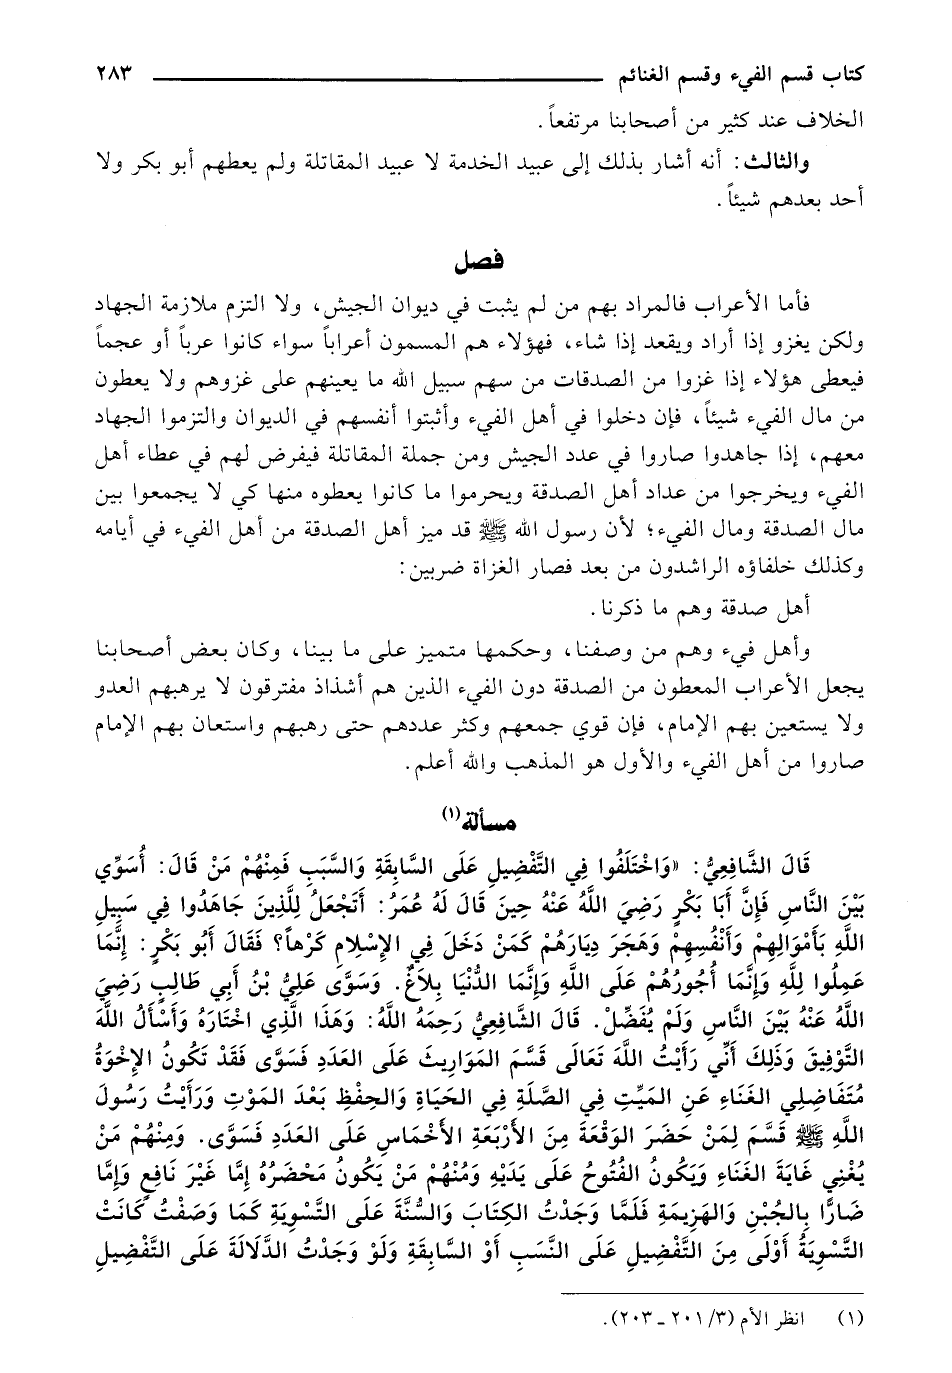 كتاب قسم الفيء وقسم الغنائم ٢٨٣
الخلاف عند كثير من أصحابنا مرتفعاً.
والثالث: أنه أشار بذلك إلى عبيد الخدمة لا عبيد المقاتلة ولم يعطهم أبو بكر ولا
أحد بعدهم شيئاً.
فصل
فأما الأعراب فالمراد بهم من لم يثبت في ديوان الجيش، ولا التزم ملازمة الجهاد
ولكن يغزو إذا أراد ويقعد إذا شاء، فهؤلاء هم المسمون أعراباً سواء كانوا عرباً أو عجماً
فيعطى هؤلاء إذا غزوا من الصدقات من سهم سبيل الله ما يعينهم على غزوهم ولا يعطون
من مال الفيء شيئاً، فإن دخلوا في أهل الفيء وأثبتوا أنفسهم في الديوان والتزموا الجهاد
معهم، إذا جاهدوا صاروا في عدد الجيش ومن جملة المقاتلة فيفرض لهم في عطاء أهل
الفيء ويخرجوا من عداد أهل الصدقة ويحرموا ما كانوا يعطوه منها كي لا يجمعوا بين
مال الصدقة ومال الفيء؛ لأن رسول الله ﷺ قد ميز أهل الصدقة من أهل الفيء في أيامه
وكذلك خلفاؤه الراشدون من بعد فصار الغزاة ضربين:
أهل صدقة وهم ما ذكرنا.
وأهل فيء وهم من وصفنا، وحكمها متميز على ما بينا، وكان بعض أصحابنا
يجعل الأعراب المعطون من الصدقة دون الفيء الذين هم أشذاذ مفترقون لا يرهبهم العدو
ولا يستعين بهم الإمام، فإن قوي جمعهم وكثر عددهم حتى رهبهم واستعان بهم الإمام
صاروا من أهل الفيء والأول هو المذهب والله أعلم.
مسألة(١)
قَالَ الشَّافِعِيُّ: «وَاخْتَلَفُوا فِي التَّفْضِيلِ عَلَى السَّابِقَةِ وَالسَّبَبِ فَمِنْهُمْ مَنْ قَالَ: أُسَوِّي
بَيْنَ النَّاسِ فَإِنَّ أَبَا بَكْرٍ رَضِيَ اللَّهُ عَنْهُ حِينَ قَالَ لَهُ عُمَرُ: أَتَجْعَلُ لِلَّذِينَ جَاهَدُوا فِي سَبِيلِ
اللَّهِ بَأَمْوَالِهِمْ وَأَنْفُسِهِمْ وَهَجَرَ دِيَارَهُمْ كَمَنْ دَخَلَ فِي الإِسْلَامِ كَرْهاً؟ فَقَالَ أَبُو بَكْرٍ: إِنَّمَا
عَمِلُوا لِلَّهِ وَإِنَّمَا أُجُورُهُمْ عَلَى اللَّهِ وَإِنَّمَا الدُّنْيَا بِلَاغٌ. وَسَوَّى عَلِيُّ بْنُ أَبِي طَالِبٍ رَضِيَ
اللَّهُ عَنْهُ بَيْنَ النَّاسِ وَلَمْ يُفَضِّلْ. قَالَ الشَّافِعِيُّ رَحِمَهُ اللَّهُ: وَهَذَا الَّذِي اخْتَارَهُ وَأَسْأَلُ اللَّهَ
التَّوْفِيقَ وَذَلِكَ أَنِّي رَأَيْتُ اللَّهَ تَعَالَى قَسَّمَ المَوَارِيثَ عَلَى العَدَدِ فَسَوَّى فَقَدْ تَكُونُ الإِخْوَةُ
مُتَفَاضِلِي الغَنَاءِ عَنِ المَيِّتِ فِي الصِّلَةِ فِي الحَيَاةِ وَالحِفْظِ بَعْدَ المَوْتِ وَرَأَيْتُ رَسُولَ
اللَّهِ ﷺ قَسَّمَ لِمَنْ حَضَرَ الوَقْعَةَ مِنَ الأَرْبَعَةِ الأَخْمَاسِ عَلَى العَدَدِ فَسَوَّى. وَمِنْهُمْ مَنْ
يُغْنِي غَايَةَ الغَنَاءِ وَيَكُونُ الفُتُوحُ عَلَى يَدَيْهِ وَمُنْهُمْ مَنْ يَكُونُ مَحْضَرُهُ إِمَّا غَيْرَ نَافِعٍ وَإِمَّا
ضَارًّا بِالجُبْنِ وَالهَزِيمَةِ فَلَمَّا وَجَدْتُ الكِتَابَ وَالسُّنَّةَ عَلَى التَّسْوِيَةِ كَمَا وَصَفْتُ كَانَتْ
التَّسْوِيَةُ أَوْلَى مِنَ التَّفْضِيلِ عَلَى النَّسَبِ أَوْ السَّابِقَةِ وَلَوْ وَجَدْتُ الدَّلَالَةَ عَلَى التَّفْضِيلِ
(١) انظر الأم (٣/ ٢٠١ ـ ٢٠٣).